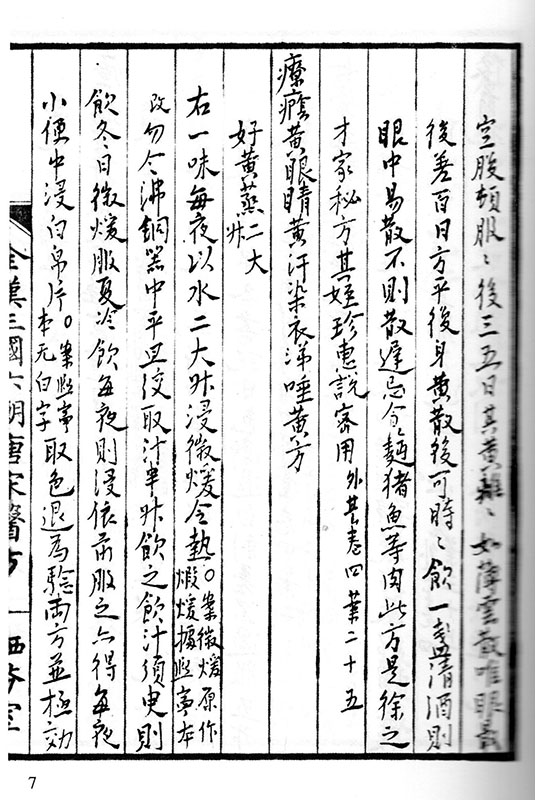 空腹頓服〻後三五日其黄離〻如薄雲散唯眼最
後差百日方平後身黄散後可時〻飲一盞清酒則
眼中易散不則散遲忌食麵猪魚等肉此方是徐之
才家秘方其姪珍惠説密用 外其卷四葉二十五
療癊黄眼睛黄汗染衣涕唾黄方
好黄蒸二大升
右一味每夜以水二大升浸微煖令熱。案微煖原作煅煖據熙寧本
改勿令沸銅器中平旦絞取汁半升飲之飲汁須臾則
飲冬日微煖服夏冷飲每夜則浸依前服之亦得每夜
小便中浸白帛片。案熙寧本无白字取色退為驗兩方並極効
全漢三國六朝唐宋醫方 一 栖芬室
7